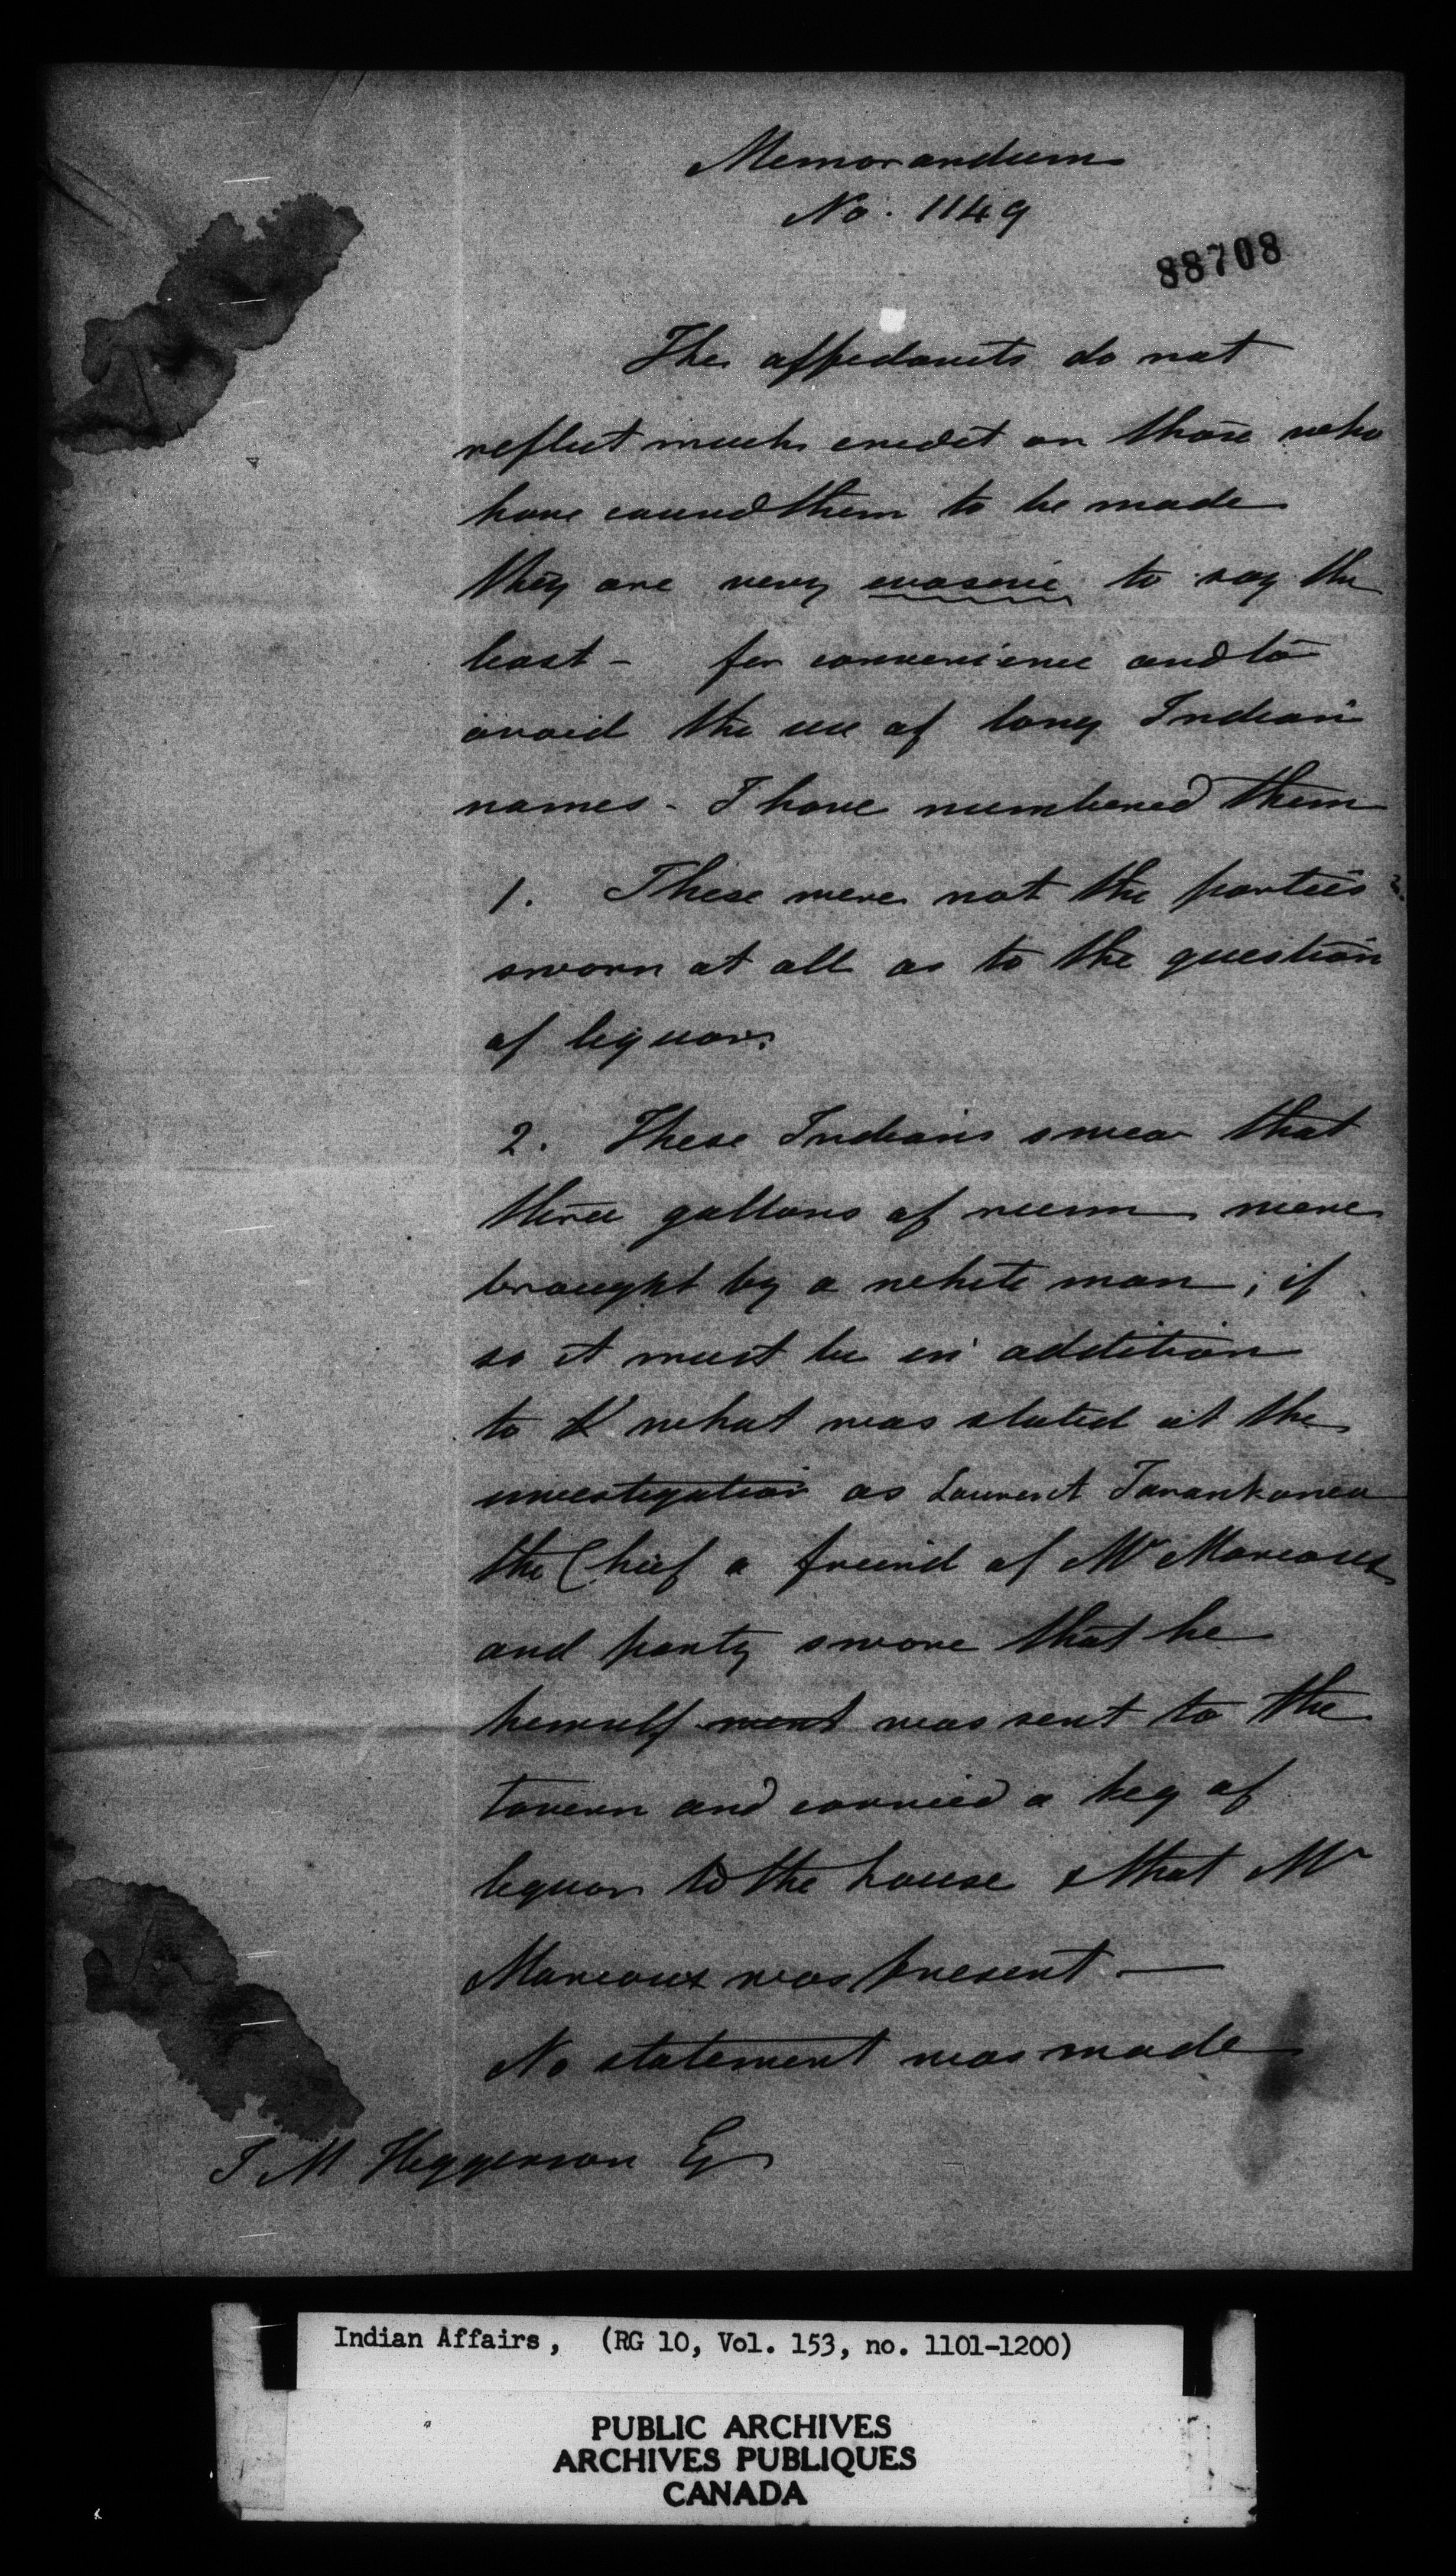 Memorandum
No. 1149
88708
The affedavits do not
reflect much credit on those who
have caused them to be made
they are very evasive to say the
least - for convenience and to
avoid the use of long Indian
names - I have numbered them
1. These were not the parties
sworn at all as to the question
of liquor.
2. These Indians swear that
three gallons of rum were
brought by a white man; if
so it must be in addition
to what was stated at the
investigation as Laurent
the Chief a friend of Mr Marcoux
and party swore that he
himself went was sent to the
tavern and carried a keg of
liquor to the house & that Mr
Marcoux was present -
No statement was made
Esq
Indian Affairs, (RG 10, Vol. 153, no. 1101-1200)
PUBLIC ARCHIVES
ARCHIVES PUBLIQUES
CANADA